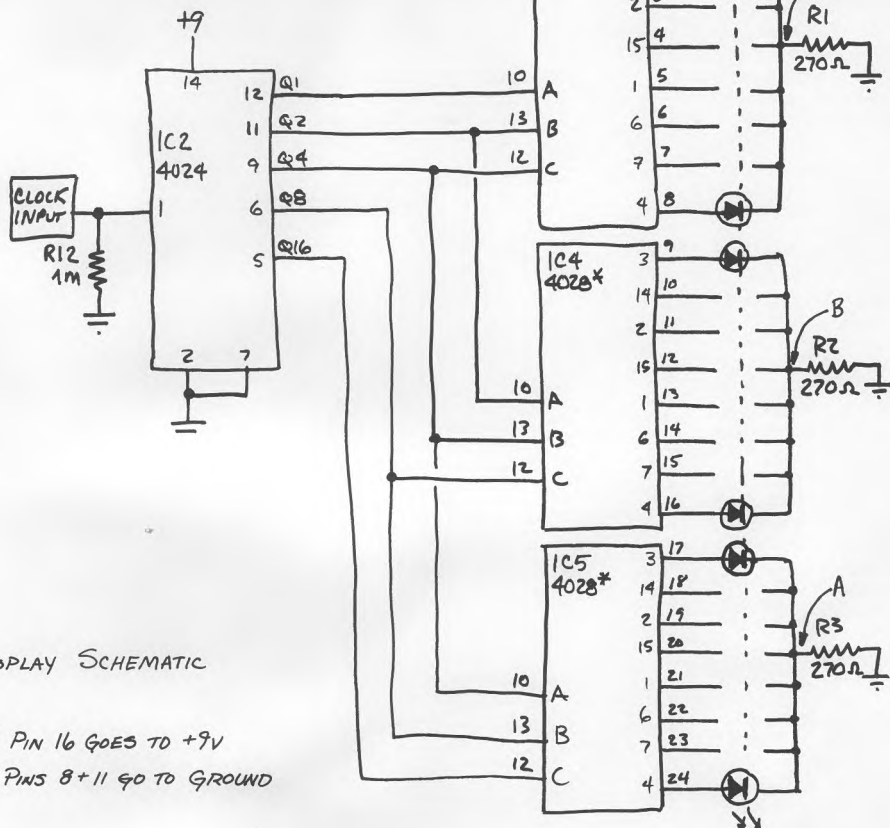 +9
14
IC2
4024
12 Q1
11 Q2
9 Q4
6 Q8
5 Q16
1
2 7
CLOCK
INPUT
R12
1M
10 A
13 B
12 C
2
15 4
1 5
6 6
7 7
4 8
R1
270Ω
IC4
4028*
3 9
14 10
2 11
15 12
1 13
6 14
7 15
4 16
10 A
13 B
12 C
B
R2
270Ω
IC5
4028*
3 17
14 18
2 19
15 20
1 21
6 22
7 23
4 24
10 A
13 B
12 C
A
R3
270Ω
SPLAY SCHEMATIC
PIN 16 GOES TO +9V
PINS 8+11 GO TO GROUND